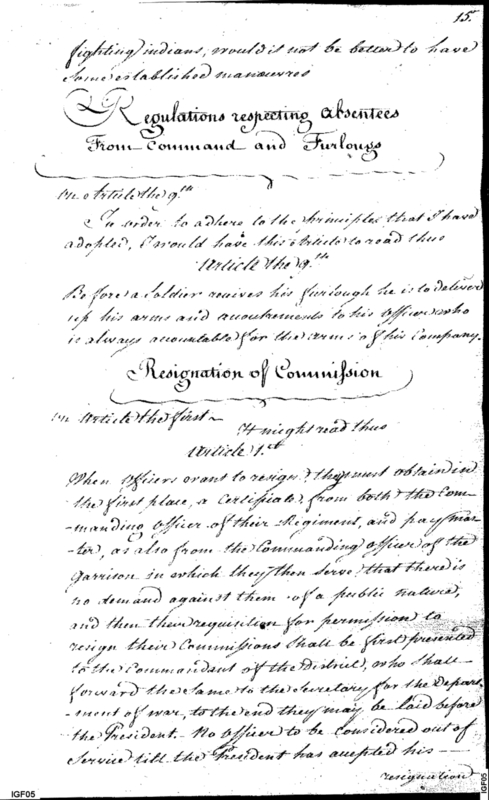 15.
fighting indians, would it not be better to have
Some established manœuvres
Regulations respecting absentees
From Command and Furlougs
on Article the 9.th
In order to adhere to the Principles that I have
adopted, I would have this Article to read thus
Article the 9.th
Before a Soldier receives his furlough he is to deliver
up his arms and accoutrements to his Officer who
is always accountable for the arms of his Company.
Resignation of Commission
on Article the first
It might read thus
Article 1.st
When Officers want to resign they must obtain in
the first place, a Certificate, from both the Com
-manding Officer of their Regiment, and pay mas
-ter, as also from the Commanding officer of the
Garrison in which they then serve that there is
no demand against them of a public nature,
and then their requisition for permission to
resign their Commissions Shall be first presented
to the Commandant of the District, who Shall
forward the Same to the Secretary for the Depart
-ment of war, to the end they may be laid before
the President. No officer to be considered out of
Service till the President has accepted his
resignation
IGF05
IGF05